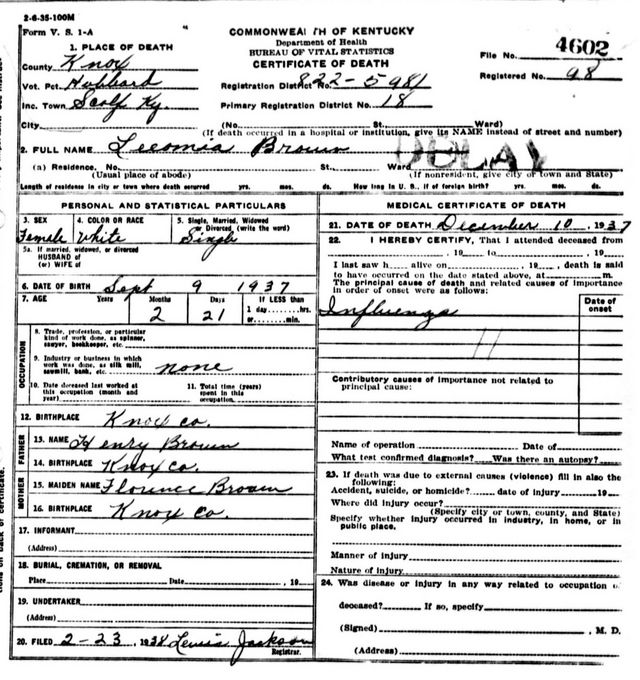 2-6-35-100M
Form V. S. 1-A
COMMONWEALTH OF KENTUCKY
Department of Health
BUREAU OF VITAL STATISTICS
CERTIFICATE OF DEATH
File No. 4602
Registered No. 98
1. PLACE OF DEATH
County Knox
Vot. Pct. Hubbard
Inc. Town Scalf Ky.
Registration District No. 822-5981
Primary Registration District No. 18
City (No. St., Ward)
(If death occurred in a hospital or institution, give its NAME instead of street and number)
2. FULL NAME Leeomia Brown
DELAY
(a) Residence. No. St., Ward
(Usual place of abode) (If nonresident, give city or town and State)
Length of residence in city or town where death occurred yrs. mos. ds. How long in U. S., if of foreign birth? yrs. mos. ds.
PERSONAL AND STATISTICAL PARTICULARS
3. SEX 4. COLOR OR RACE 5. Single, Married, Widowed
or Divorced (write the word)
Female White Single
5a. If married, widowed, or divorced
HUSBAND of
(or) WIFE of
6. DATE OF BIRTH Sept 9 1937
7. AGE Years Months Days If LESS than
2 21 1 day......hrs.
or......min.
OCCUPATION
8. Trade, profession, or particular
kind of work done, as spinner,
sawyer, bookkeeper, etc.
9. Industry or business in which
work was done, as silk mill,
sawmill, bank, etc. none
10. Date deceased last worked at
this occupation (month and
year)
11. Total time (years)
spent in this
occupation
12. BIRTHPLACE Knox co.
FATHER
13. NAME Henry Brown
14. BIRTHPLACE Knox co.
MOTHER
15. MAIDEN NAME Florence Brown
16. BIRTHPLACE Knox co
17. INFORMANT
(Address)
18. BURIAL, CREMATION, OR REMOVAL
Place Date , 19
19. UNDERTAKER
(Address)
20. FILED 2-23, 1938 Lewis Jackson
Registrar.
MEDICAL CERTIFICATE OF DEATH
21. DATE OF DEATH December 10, 1937
22. I HEREBY CERTIFY, That I attended deceased from
, 19 to , 19
I last saw h alive on , 19 , death is said
to have occurred on the date stated above, at m.
The principal cause of death and related causes of importance
in order of onset were as follows:
Date of
onset
Influenza
11
Contributory causes of importance not related to
principal cause:
Name of operation Date of
What test confirmed diagnosis? Was there an autopsy?
23. If death was due to external causes (violence) fill in also the
following:
Accident, suicide, or homicide? date of injury 19
Where did injury occur?
(Specify city or town, county, and State)
Specify whether injury occurred in industry, in home, or in
public place.
Manner of injury
Nature of injury
24. Was disease or injury in any way related to occupation of
deceased? If so, specify
(Signed) , M. D.
(Address)